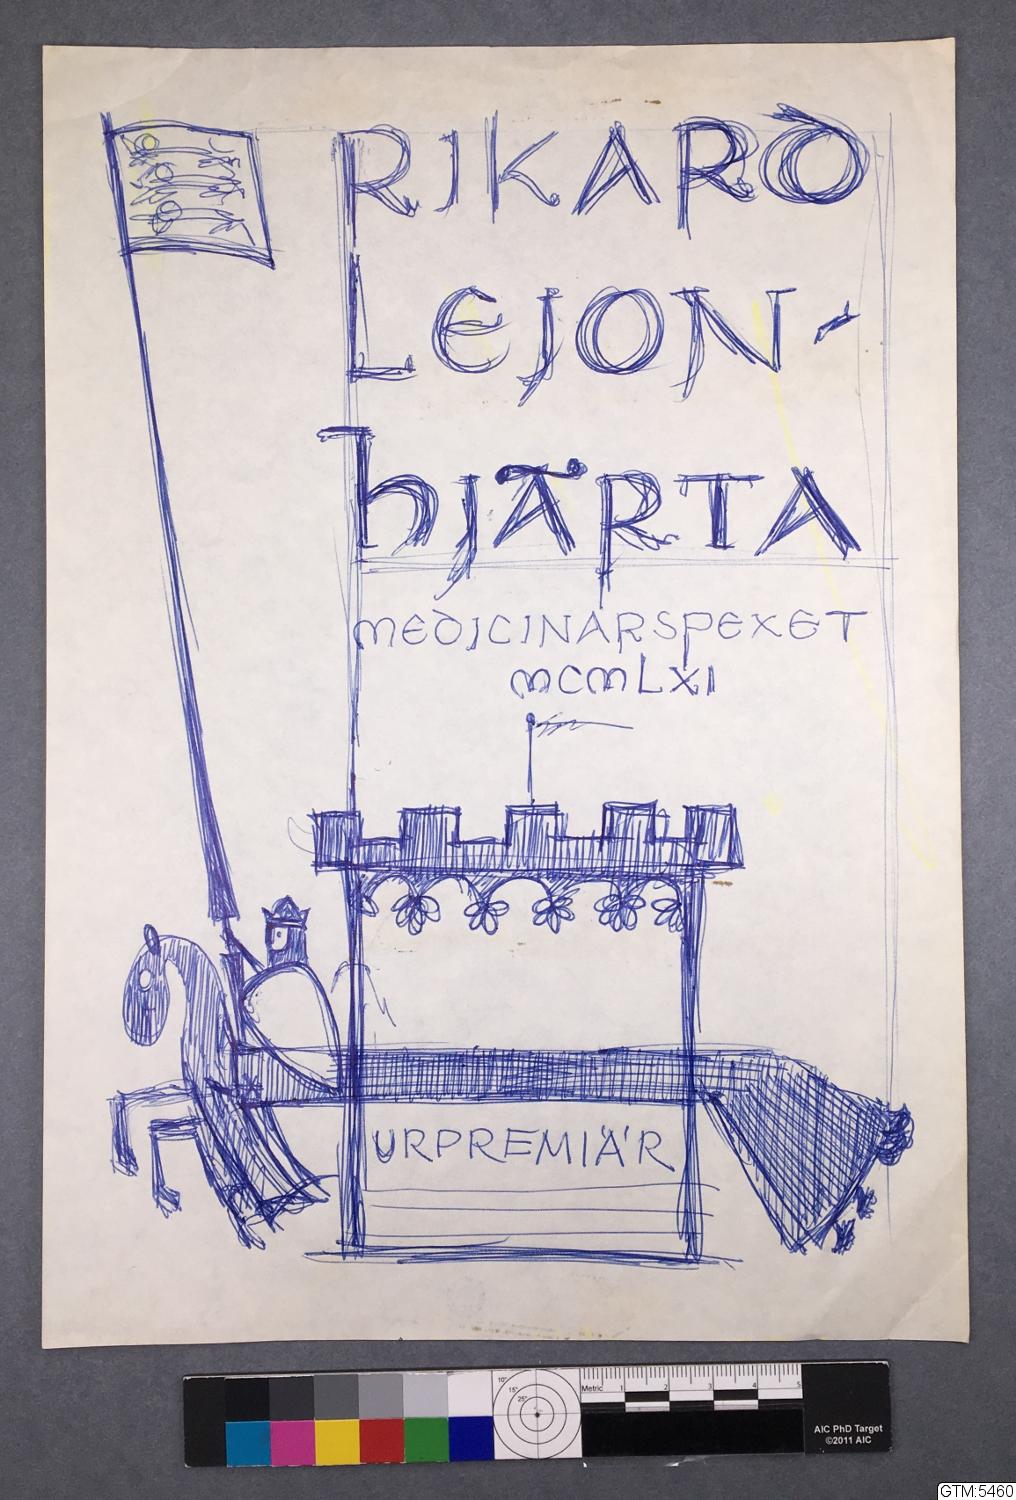 RIKARD
LEJON-
HJÄRTA
MEDICINARSPEXET
MCMLXI
URPREMIÄR
10°
15°
25°
Metric 1 2 3 4 5
AIC PhD Target
©2011 AIC
GTM:5460